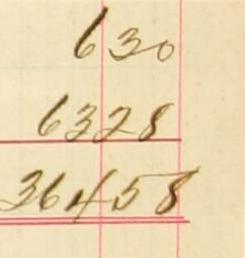 630
6328
36458